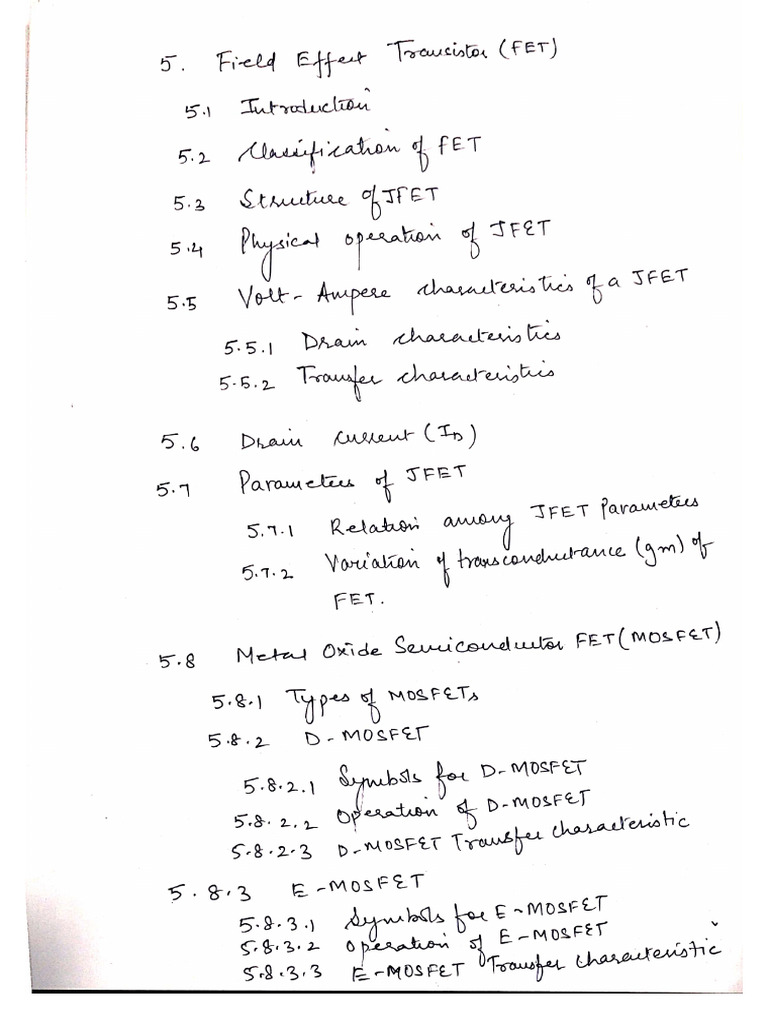 5. Field Effect Transistor (FET)
5.1 Introduction
5.2 Classification of FET
5.3 Structure of JFET
5.4 Physical operation of JFET
5.5 Volt-Ampere characteristics of a JFET
5.5.1 Drain characteristics
5.5.2 Transfer characteristics
5.6 Drain current (ID)
5.7 Parameters of JFET
5.7.1 Relation among JFET Parameters
5.7.2 Variation of transconductance (gm) of
FET.
5.8 Metal Oxide Semiconductor FET (MOSFET)
5.8.1 Types of MOSFETs
5.8.2 D-MOSFET
5.8.2.1 Symbols for D-MOSFET
5.8.2.2 Operation of D-MOSFET
5.8.2.3 D-MOSFET Transfer characteristic
5.8.3 E-MOSFET
5.8.3.1 Symbols for E-MOSFET
5.8.3.2 Operation of E-MOSFET
5.8.3.3 E-MOSFET Transfer characteristic